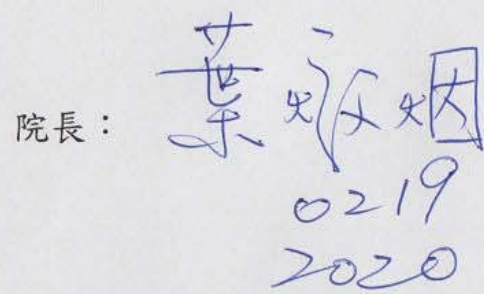 院長：葉 烟
0219
2020